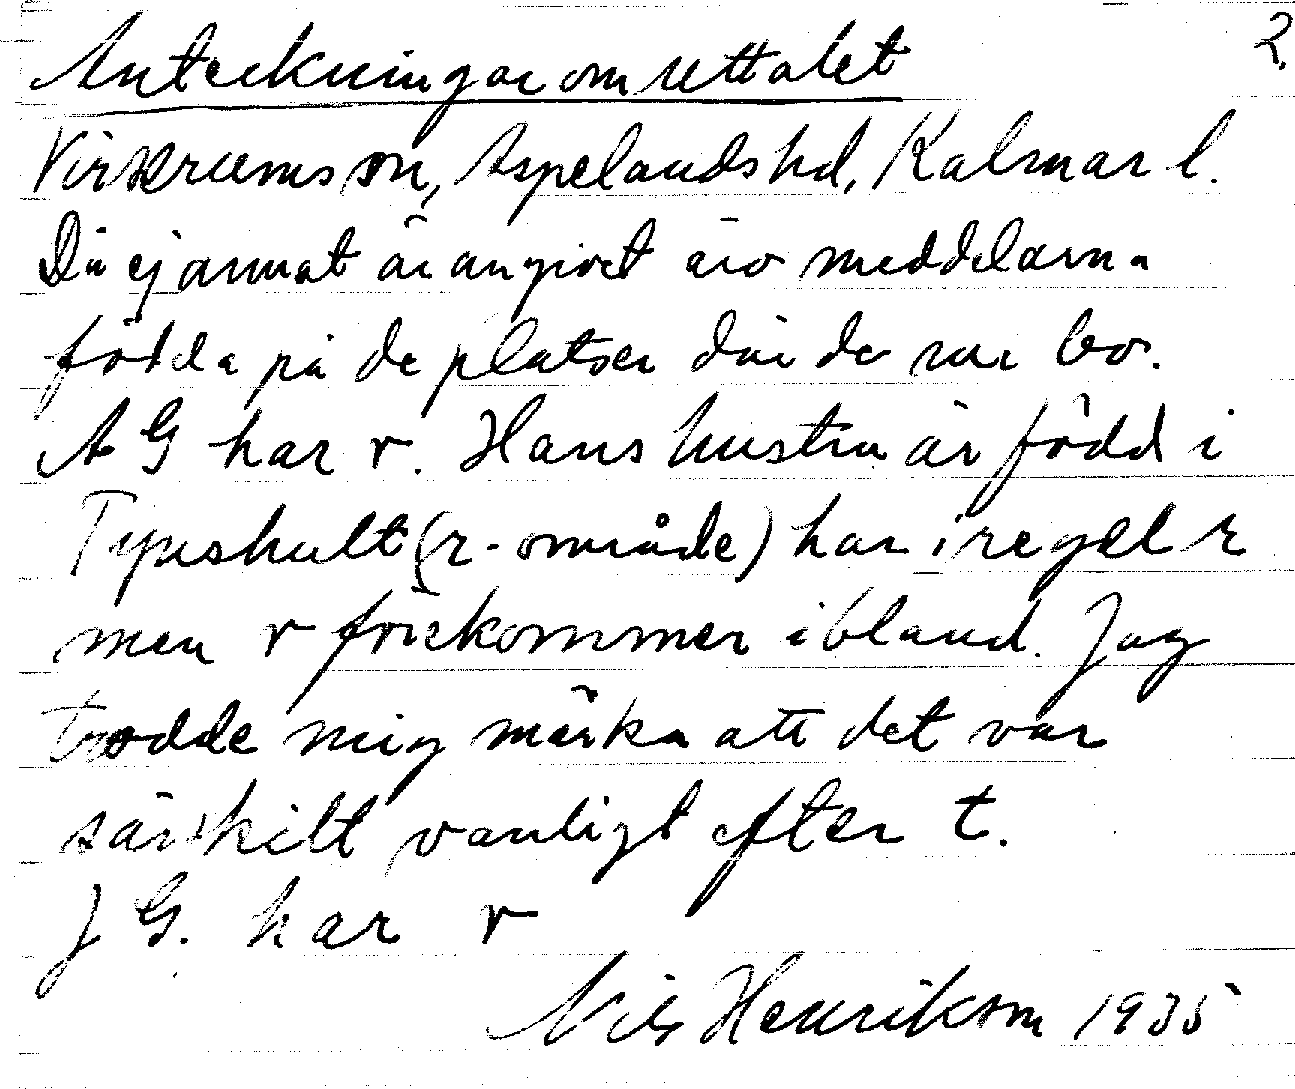 2.
Anteckningar om uttalet
Virserums sn, Aspelands hd, Kalmar l.
Då ej annat är angivet äro meddelarna
födda på de platser där de nu bo.
A G har r. Hans hustru är född i
(r-område) har i regel r
men r förekommer ibland. Jag
trodde mig märka att det var
särskilt vanligt efter t.
J G. har r
Nils Henrikson 1935